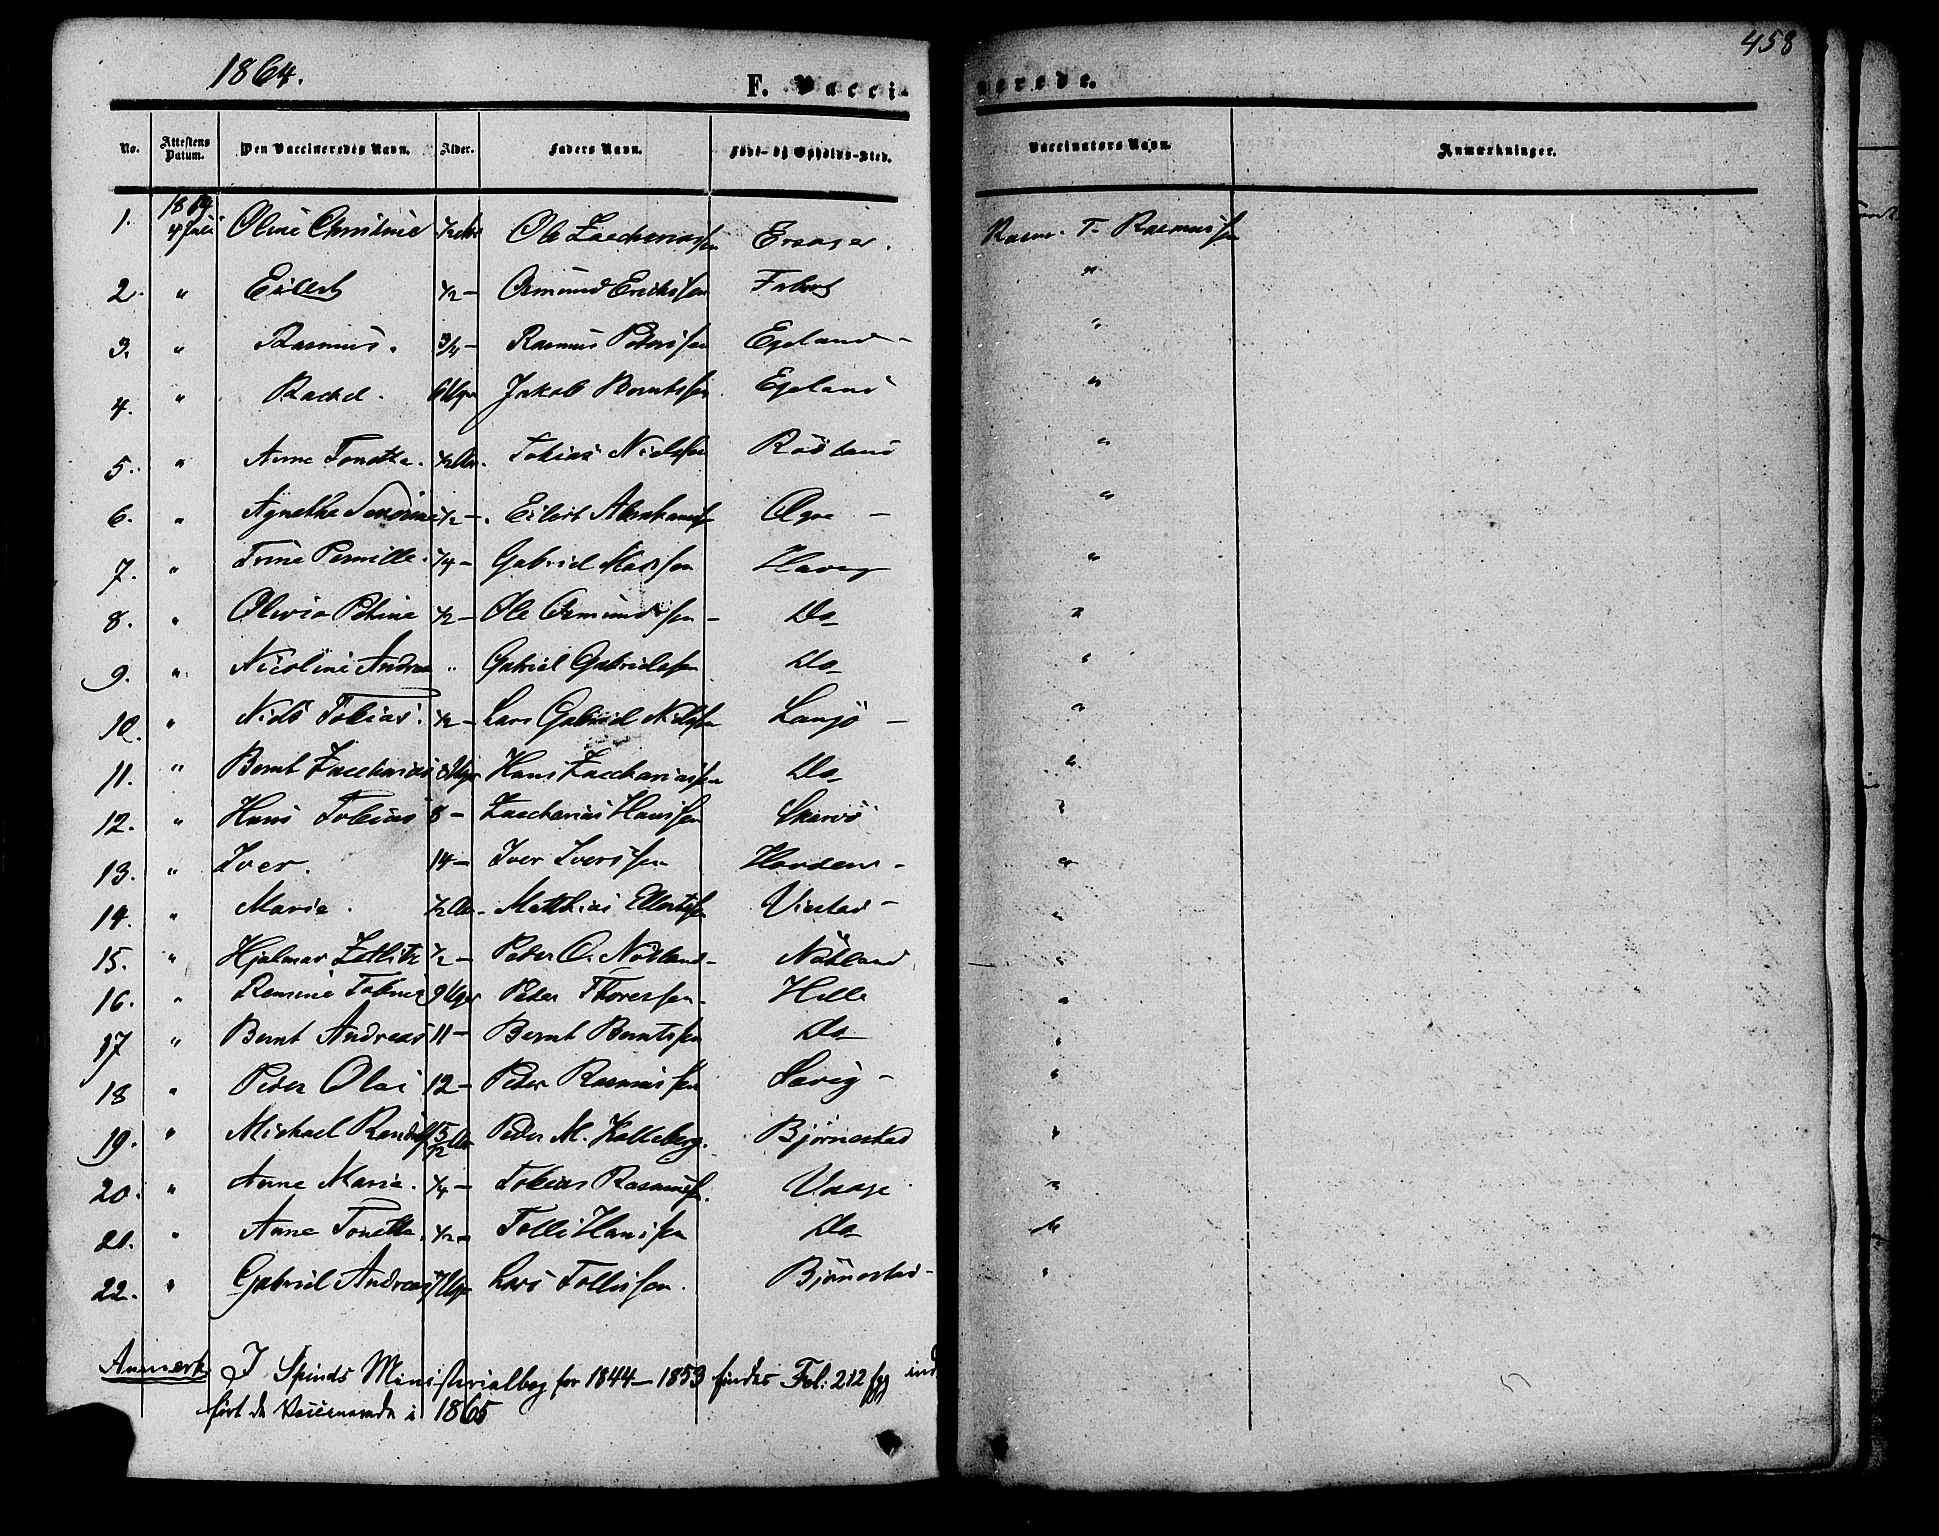 458
1864.
F. Vaccinerede.
No. Attestens Datum. Den Vaccineredes Navn. Alder. Faders Navn. Føde- og Opholds-Sted. Vaccinators Navn. Anmærkninger.
1. 1864 4 Juli Oline Christine 1/2 Ole Zacchariassen Rasm. T. Rasmussen
2. " Eilert 1/2 – Osmund Erichssen "
3. " Rasmus. 3/4 – Rasmus Peterssen Egeland – "
4. " Rachel. 6 Uger Jakob Berntssen Egeland "
5. " Anne Tonette. 1/2 Aar. Tobias Nielssen Rödland "
6. " Agnethe Severine 1/2 – Eilert Abrahamssen – "
7. " Trine Pernille. 1/4 – Gabriel Madssen Havig "
8. " Olivia Petrine 1/2 – Ole Osmundssen – Do "
9. " Nicoline Andrea " Gabriel Gabrielssen Do "
10. " Niels Tobias. 1/2 – Lars Gabriel Nilssen Langö – "
11. " Bernt Zaccharias 8 Uger Hans Zacchariassen Do "
12. " Hans Tobias 8 – Zaccharias Hanssen Skarvö "
13. " Iver. 14 – Iver Iverssen – "
14. " Marie. 1/2 Aar. Matthias Ellertssen Viestad – "
15. " Hjalmar Zetlitz 1/2 – Peder O. Nötland – Nötland "
16. " Remine Tobine 9 Uger Peder Thoressen. Hille "
17 " Bernt Andreas 11 – Bernt Berntssen Do "
18 " Peder Olai 12 – Peder Rasmussen – "
19. " Michael 5/12 Aar Peder M. Kalleberg. Bjørnestad "
20. " Anne Marie. 1/4 – Tobias Rasmussen. Vaage "
21. " Anne Tonette. 1/2 – Tolli Hanssen Do "
22. " Gabriel Andreas 7 Uger Lars Tollissen. Bjönestad – "
Anmerk. I Spinds Ministerialbog for 1844–1859 findes Fol: 212 fgg ind
ført de Vaccinerede i 1865